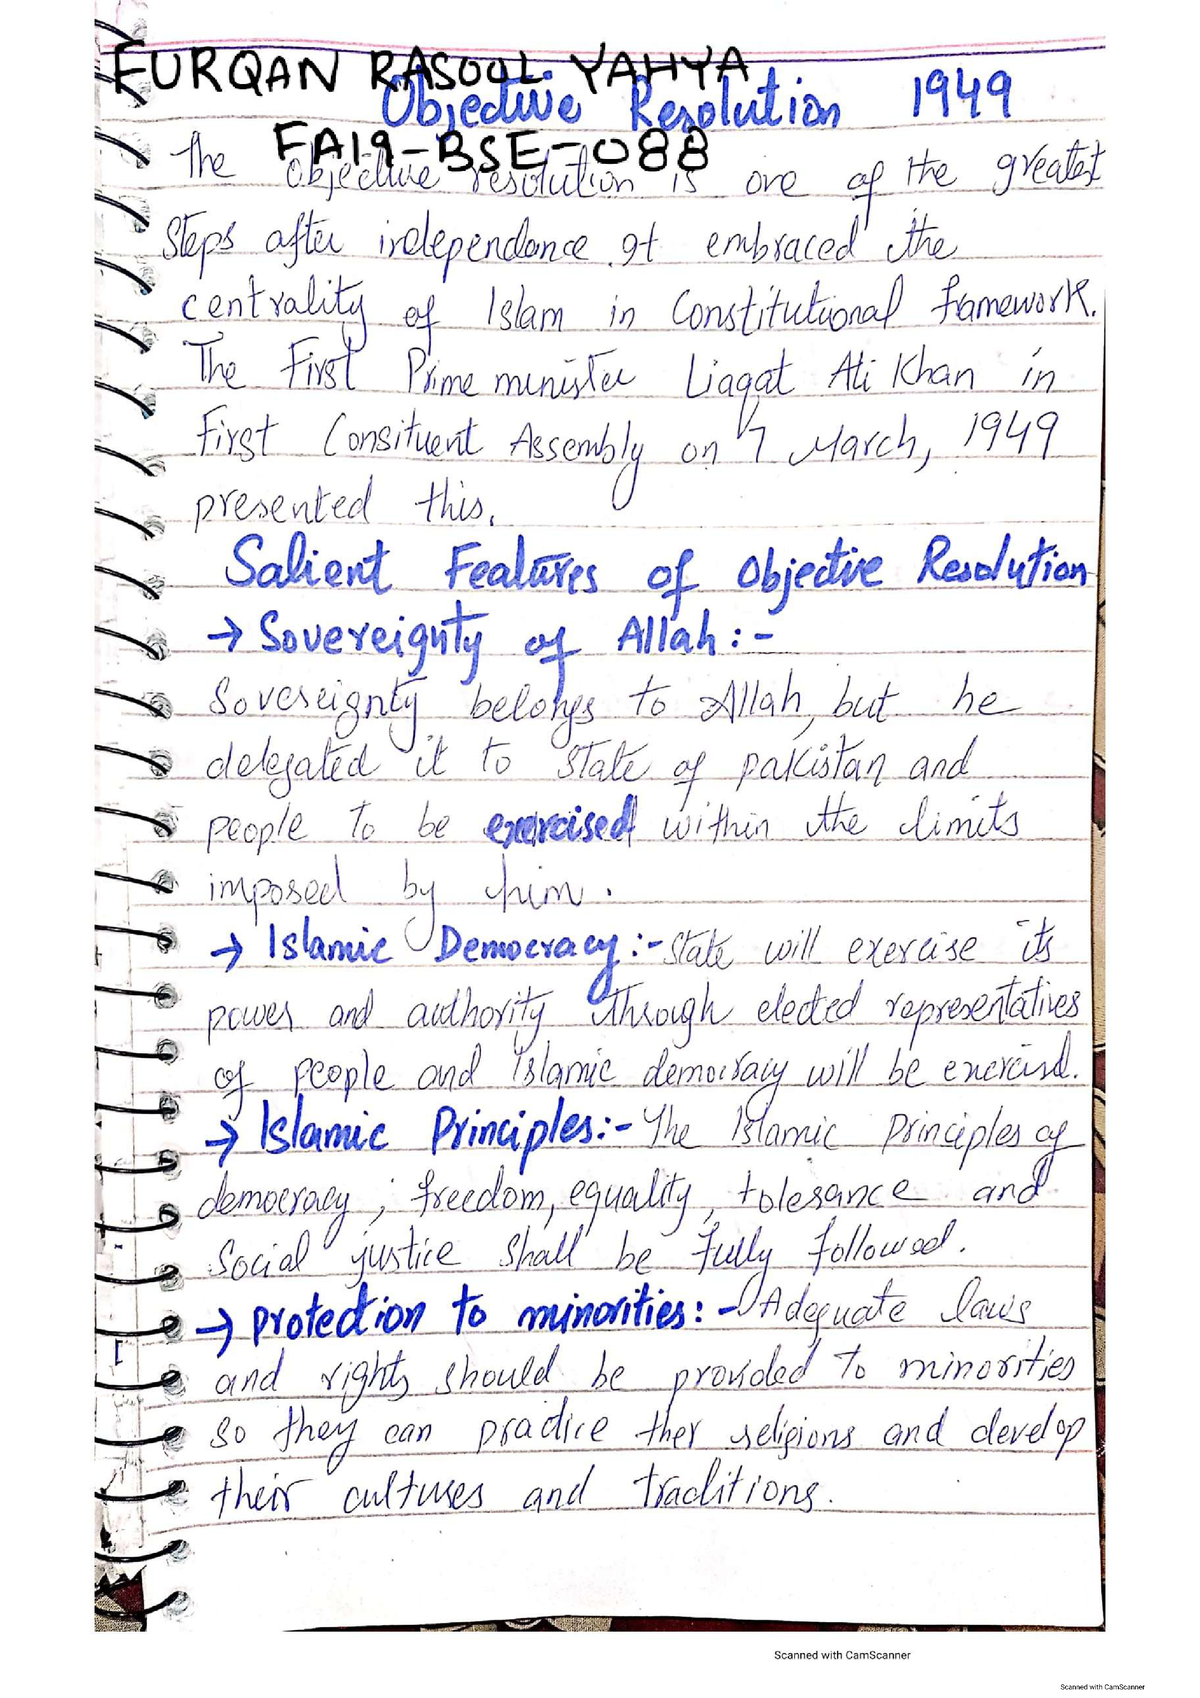 FURQAN RASOOL YAHYA
Objective Resolution 1949
FA19-BSE-088
The objective resolution is one of the greatest
steps after independence. It embraced the
centrality of Islam in Constitutional framework.
The First Prime minister Liaqat Ali Khan in
First Consituent Assembly on 7 March, 1949
presented this.
Salient Features of Objective Resolution
→ Sovereignty of Allah:-
Sovereignty belongs to Allah, but he
delegated it to state of pakistan and
people to be exercised within the limits
imposed by him.
→ Islamic Democracy:- State will exercise its
power and authority through elected representatives
of people and islamic democracy will be exercisd.
→ Islamic Principles:- The Islamic principles of
democracy, freedom, equality, tolerance and
Social justice shall be fully followed.
→ protection to minorities:- Adequate laws
and rights should be provided to minorities
so they can practice ther religions and develop
their cultures and traditions.
Scanned with CamScanner
Scanned with CamScanner